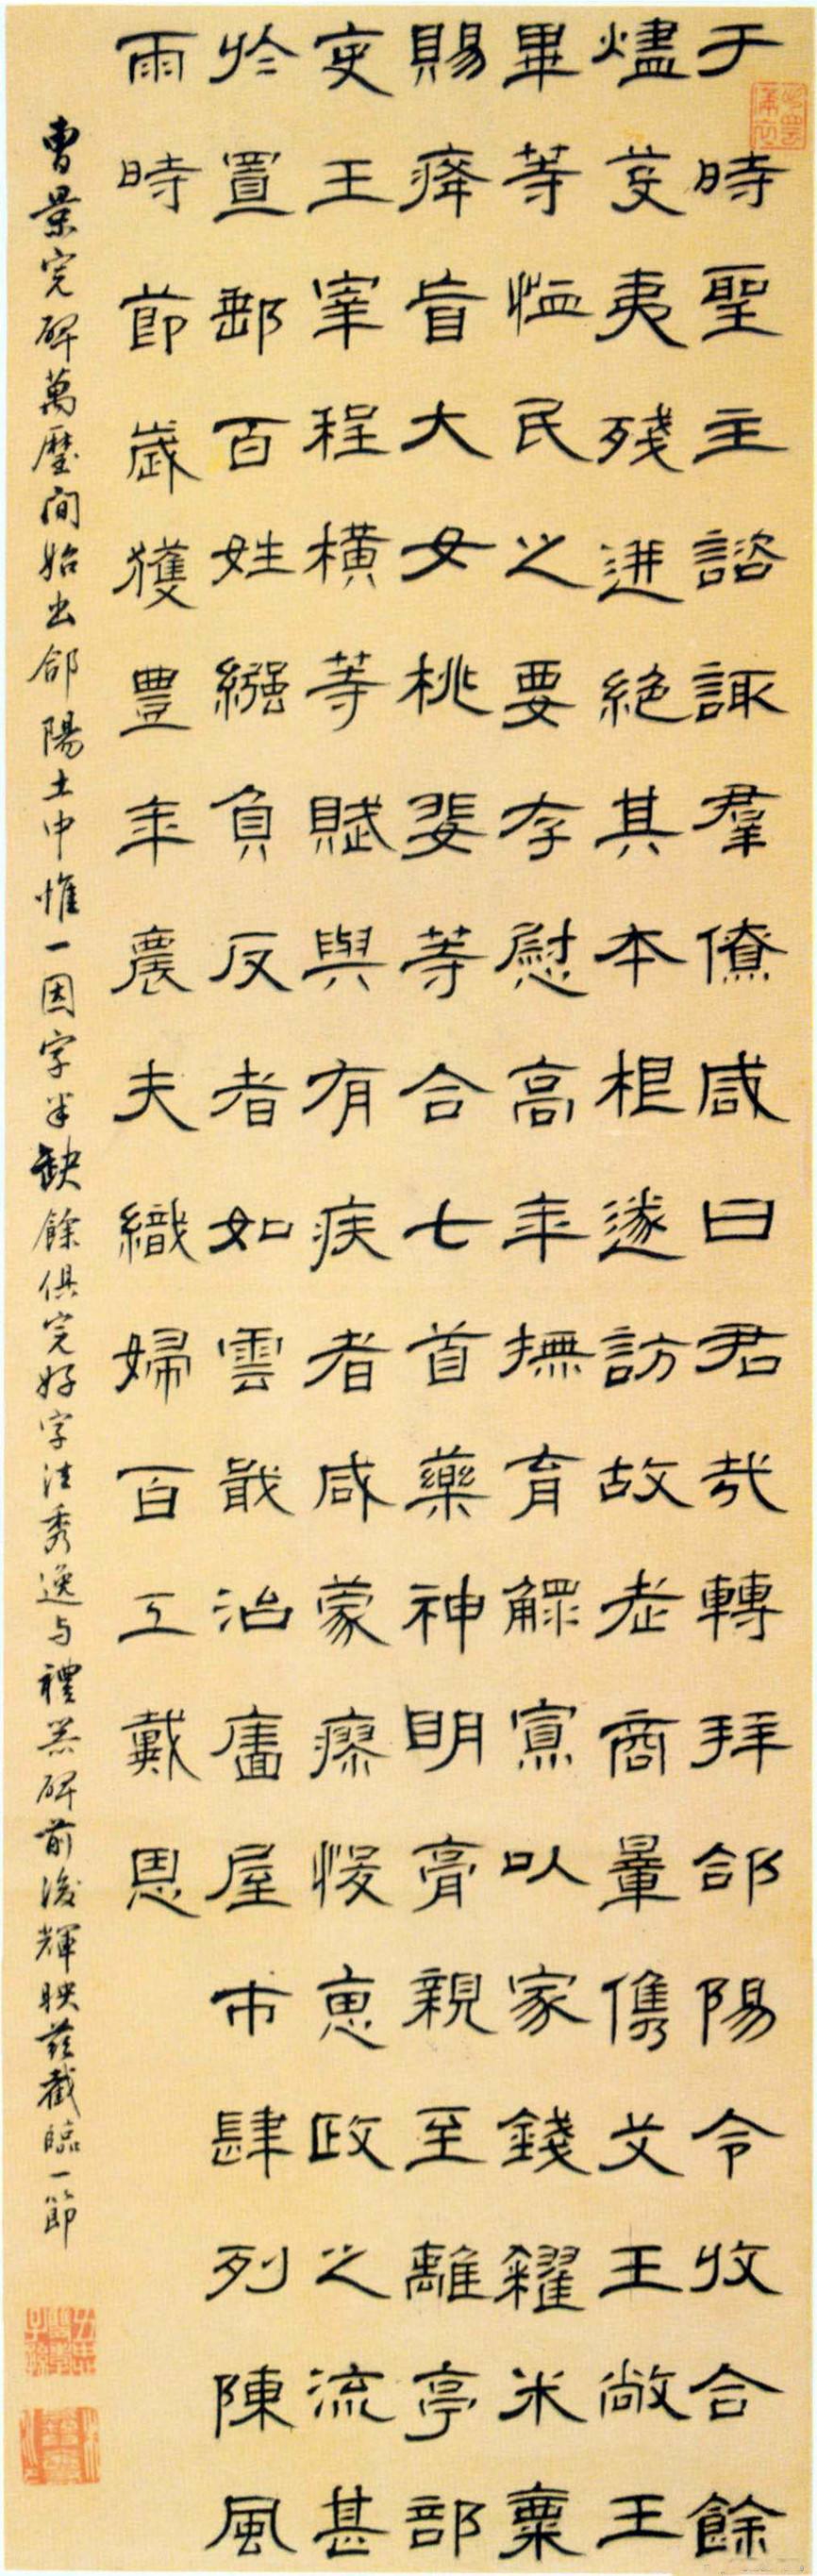 于時聖主諮諏羣僚咸曰君哉轉拜郃陽令收合餘
燼芟夷殘迸絕其本根遂訪故老商量儁艾王敞王
畢等恤民之要存慰高年撫育鰥寡以家錢糴米粟
賜癃盲大女桃斐等合七首藥神明膏親至離亭部
吏王宰程橫等賦與有疾者咸蒙瘳悛惠政之流甚
於置郵百姓繦負反者如雲戢治廧屋市肆列陳風
雨時節歲獲豐年農夫織婦百工戴恩
曹景完碑萬歷間始出郃陽土中惟一因字半缺餘俱完好字法秀逸与禮器碑前後輝映茲截臨一節